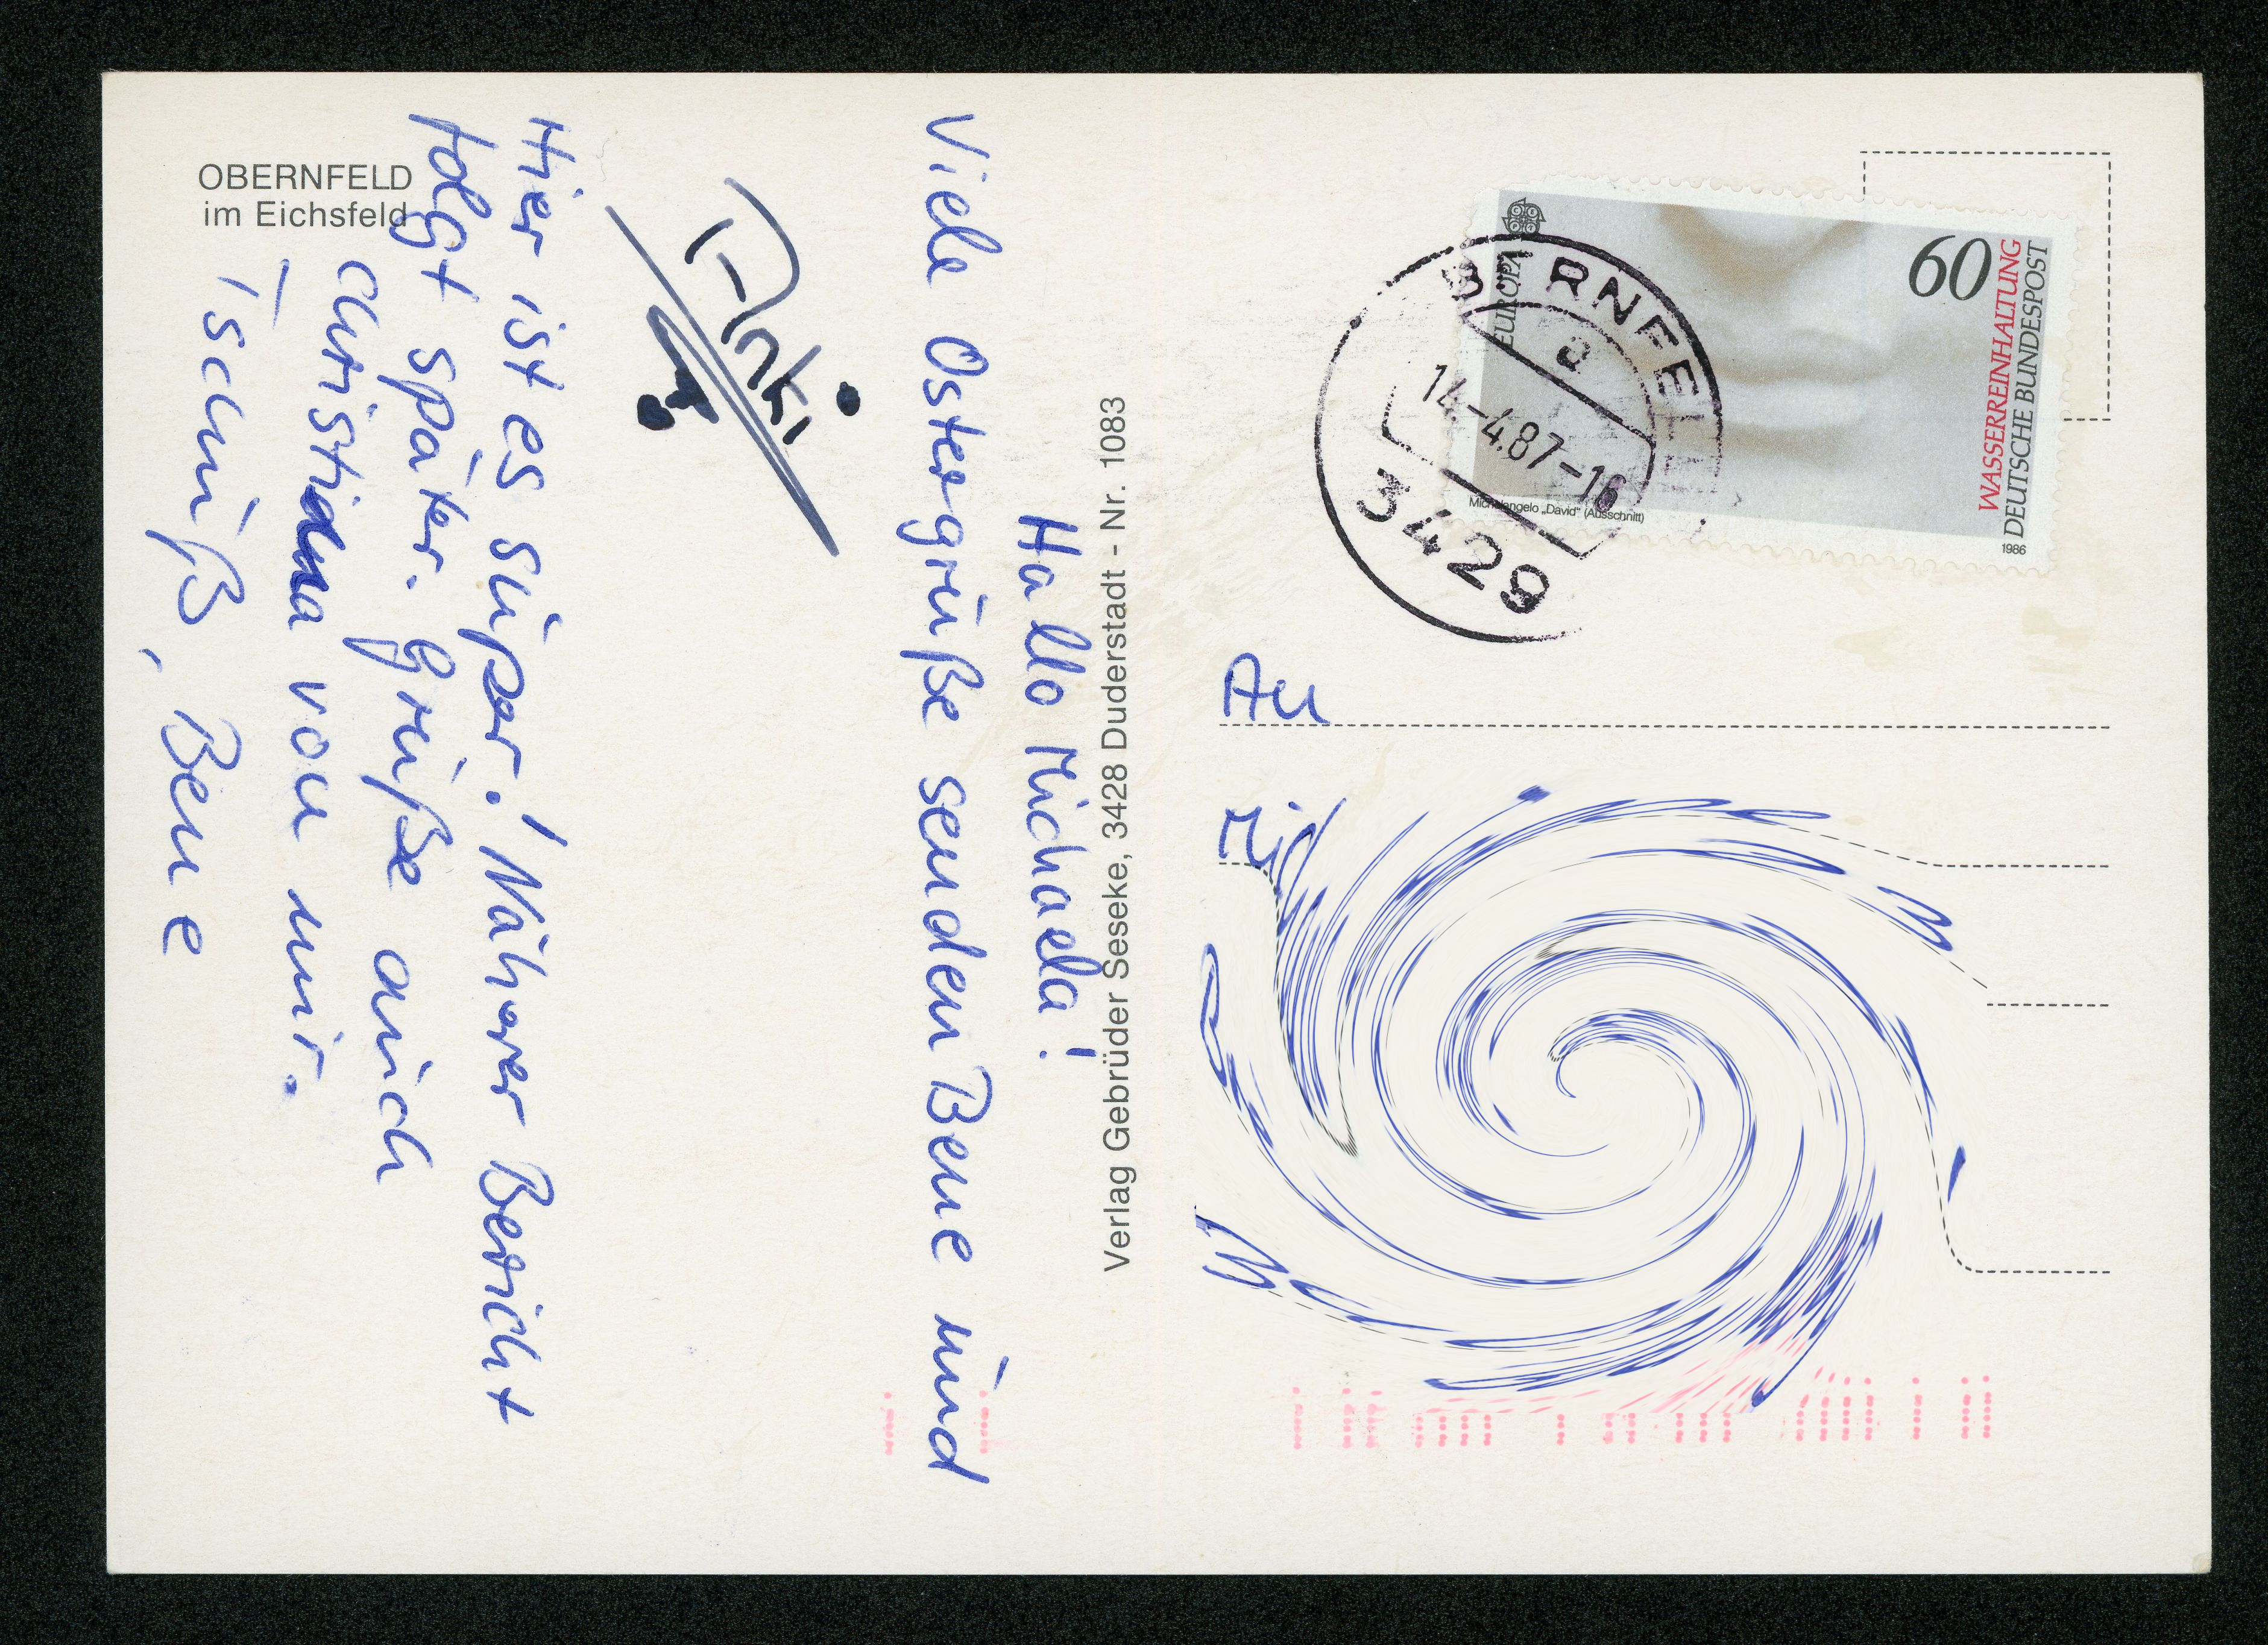 OBERNFELD
im Eichsfeld
Hallo Michaela!
Viele Ostergrüße senden Bene und
Hier ist es super! Näherer Bericht
folgt später. Grüße auch
Christina von mir.
Tschüß, Bene
Verlag Gebrüder Seseke, 3428 Duderstadt - Nr. 1083
EUROPA
60
WASSERREINHALTUNG
DEUTSCHE BUNDESPOST
Michelangelo „David“ (Ausschnitt)
1986
a
14.-4.87-16
3429
An